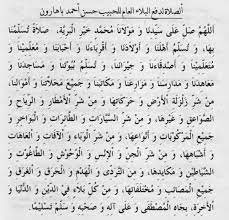 الصلاة لدفع البلاء العام للحبيب حسن أحمد باهارون
اَللّٰهُمَّ صَلِّ عَلَى سَيِّدِنَا وَ مَوْلَانَا مُحَمَّدٍ خَيْرِ الْبَرِيَّةِ، صَلَاةً تُسَلِّمُنَا
بِهَا، وَ تُسَلِّمُ أَهْلَنَا وَ أَوْلَادَنَا وَ أَقْرِبَاءَنَا وَ أَحْبَابَنَا وَ مُعَلِّمِيْنَا وَ
مُتَعَلِّمِيْنَا وَ أَصْدِقَاءَنَا وَ جِيْرَانَنَا، وَ تُسَلِّمُ بُيُوْتَنَا وَ مَسَاجِدَنَا وَ
مَعَاهِدَنَا وَ مَدَارِسَنَا وَ مَزَارِعَنَا وَ مَكَاتِبَنَا وَ مَحَلَّاتِنَا وَ أَمْوَالَنَا،
مِنْ شَرِّ زَلْزَلَةِ الْأَرْضِ وَ حَرَكَاتِهَا، وَ مِنْ شَرِّ الْبِحَارِ وَ الْأَنْهَارِ وَ
أَمْوَاجِهَا، وَ مِنْ شَرِّ السَّيَّارَاتِ وَ الطَّيَّارَاتِ وَ الْبَوَاخِرِ وَ
جَمِيْعِ الْمَرْكُوْبَاتِ وَ أَنْوَاعِهَا، وَ مِنْ شَرِّ الْوَبَاءِ وَ الطَّاعُوْنِ وَ
أَشْبَاهِهَا، وَ مِنْ شَرِّ الْجِنِّ وَ الْإِنْسِ وَ الْوُحُوْشِ وَ الطَّاغُوْتِ وَ
الشَّيَاطِيْنِ وَ مَكَايِدِهَا، وَ مِنَ التَّرَدِّي وَ الْهَدْمِ وَ الْحَرْقِ وَ الْغَرَقِ وَ
جَمِيْعِ الْمَصَائِبِ وَ مُخْتَلِفَاتِهَا، وَ مِنْ كُلِّ بَلَاءٍ فِي الدِّيْنِ وَ الدُّنْيَا وَ
الْآخِرَةِ، بِجَاهِ الْمُصْطَفَى وَ عَلَى آلِهِ وَ صَحْبِهِ وَ سَلِّمْ تَسْلِيْمًا.